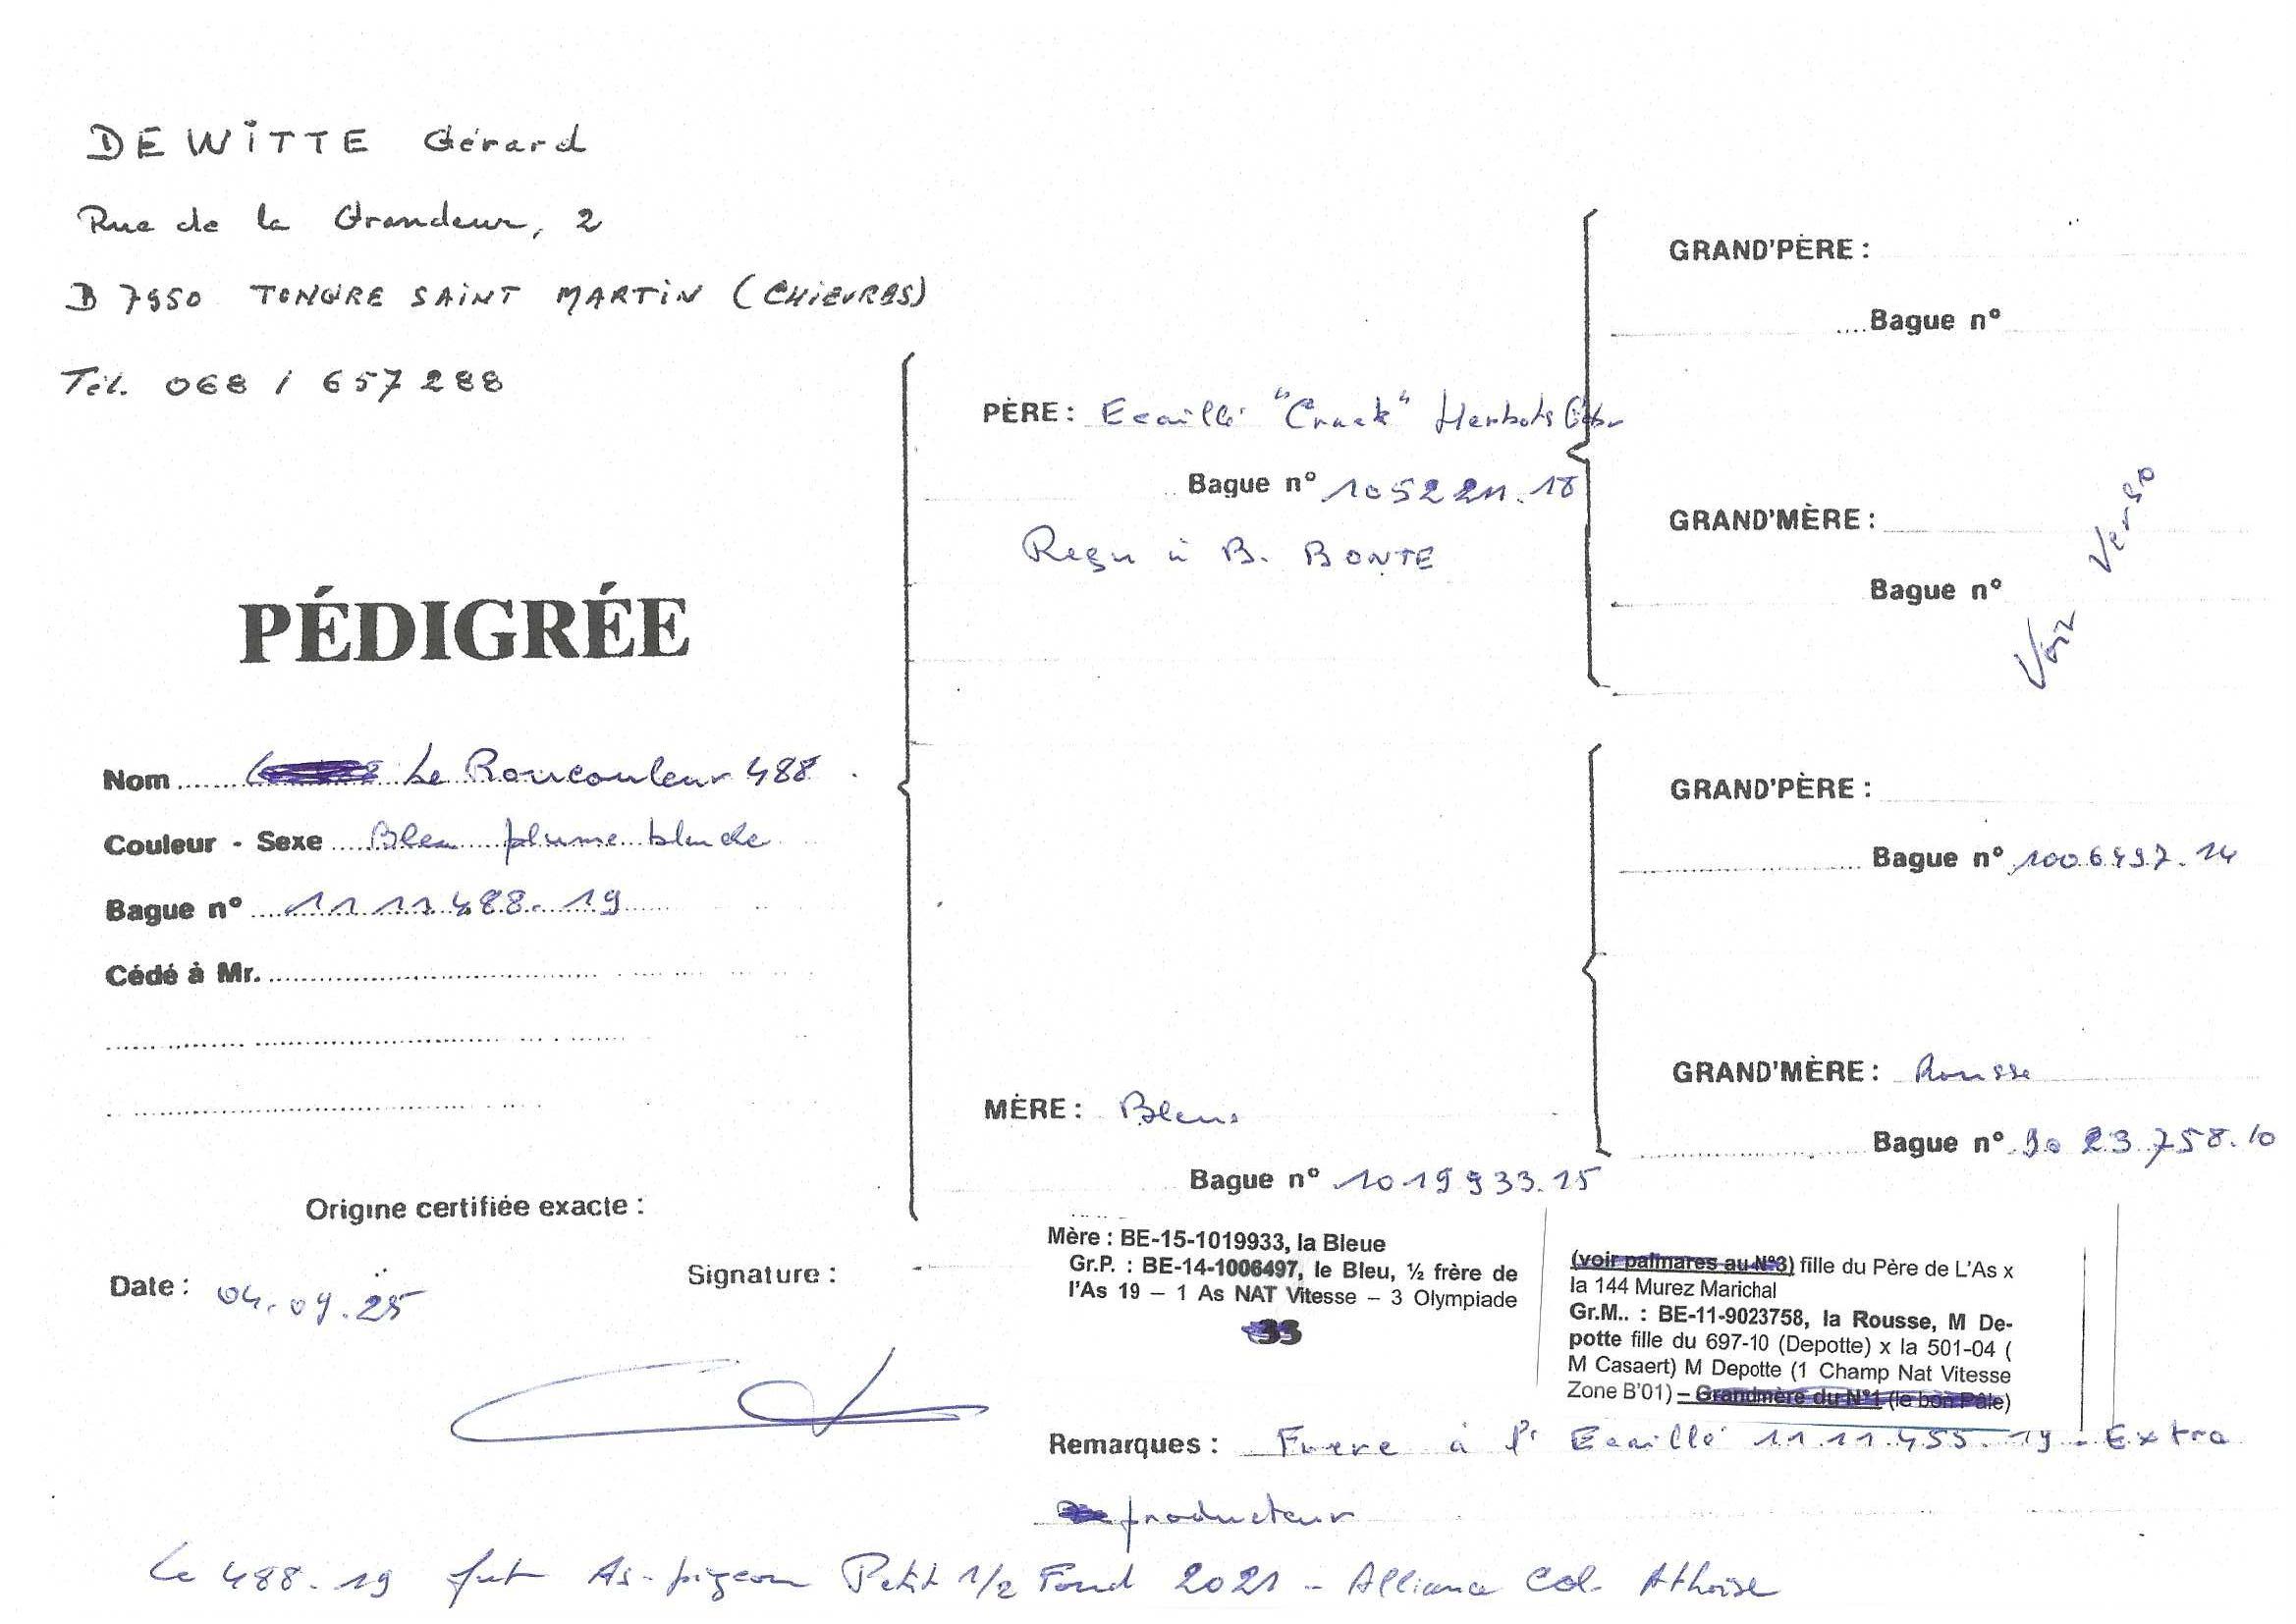 DEWITTE Gérard
Rue de la Grandeur, 2
B 7950 TONGRE SAINT MARTIN (CHIEVRES)
Tél. 068 / 657288
PÉDIGRÉE
Nom Le Roucouleur 488
Couleur - Sexe Bleu plume blanche
Bague n° 1111488.19
Cédé à Mr.
Origine certifiée exacte :
Date : 04.09.25
Signature :
PÈRE : Ecaillé "Crack" Herbots
Bague n° 1052211.18
Reçu à B. BONTE
MÈRE : Bleue
Bague n° 1019933.15
Mère : BE-15-1019933, la Bleue
Gr.P. : BE-14-1006497, le Bleu, ½ frère de
l'As 19 – 1 As NAT Vitesse – 3 Olympiade
GRAND'PÈRE :
Bague n°
GRAND'MÈRE :
Bague n°
Voir Verso
GRAND'PÈRE :
Bague n° 1006497.14
GRAND'MÈRE : Rousse
Bague n° 9023758.10
(voir palmares au N°3) fille du Père de L'As x
la 144 Murez Marichal
Gr.M.. : BE-11-9023758, la Rousse, M De-
potte fille du 697-10 (Depotte) x la 501-04 (
M Casaert) M Depotte (1 Champ Nat Vitesse
Zone B'01) – Grandmère du N°1 (le bon Pâle)
Remarques : Frere à l'Ecaillé 1111455.19 - Extra
producteur
Le 488.19 fut As-pigeon Petit 1/2 Fond 2021 - Alliance Col. Athoise